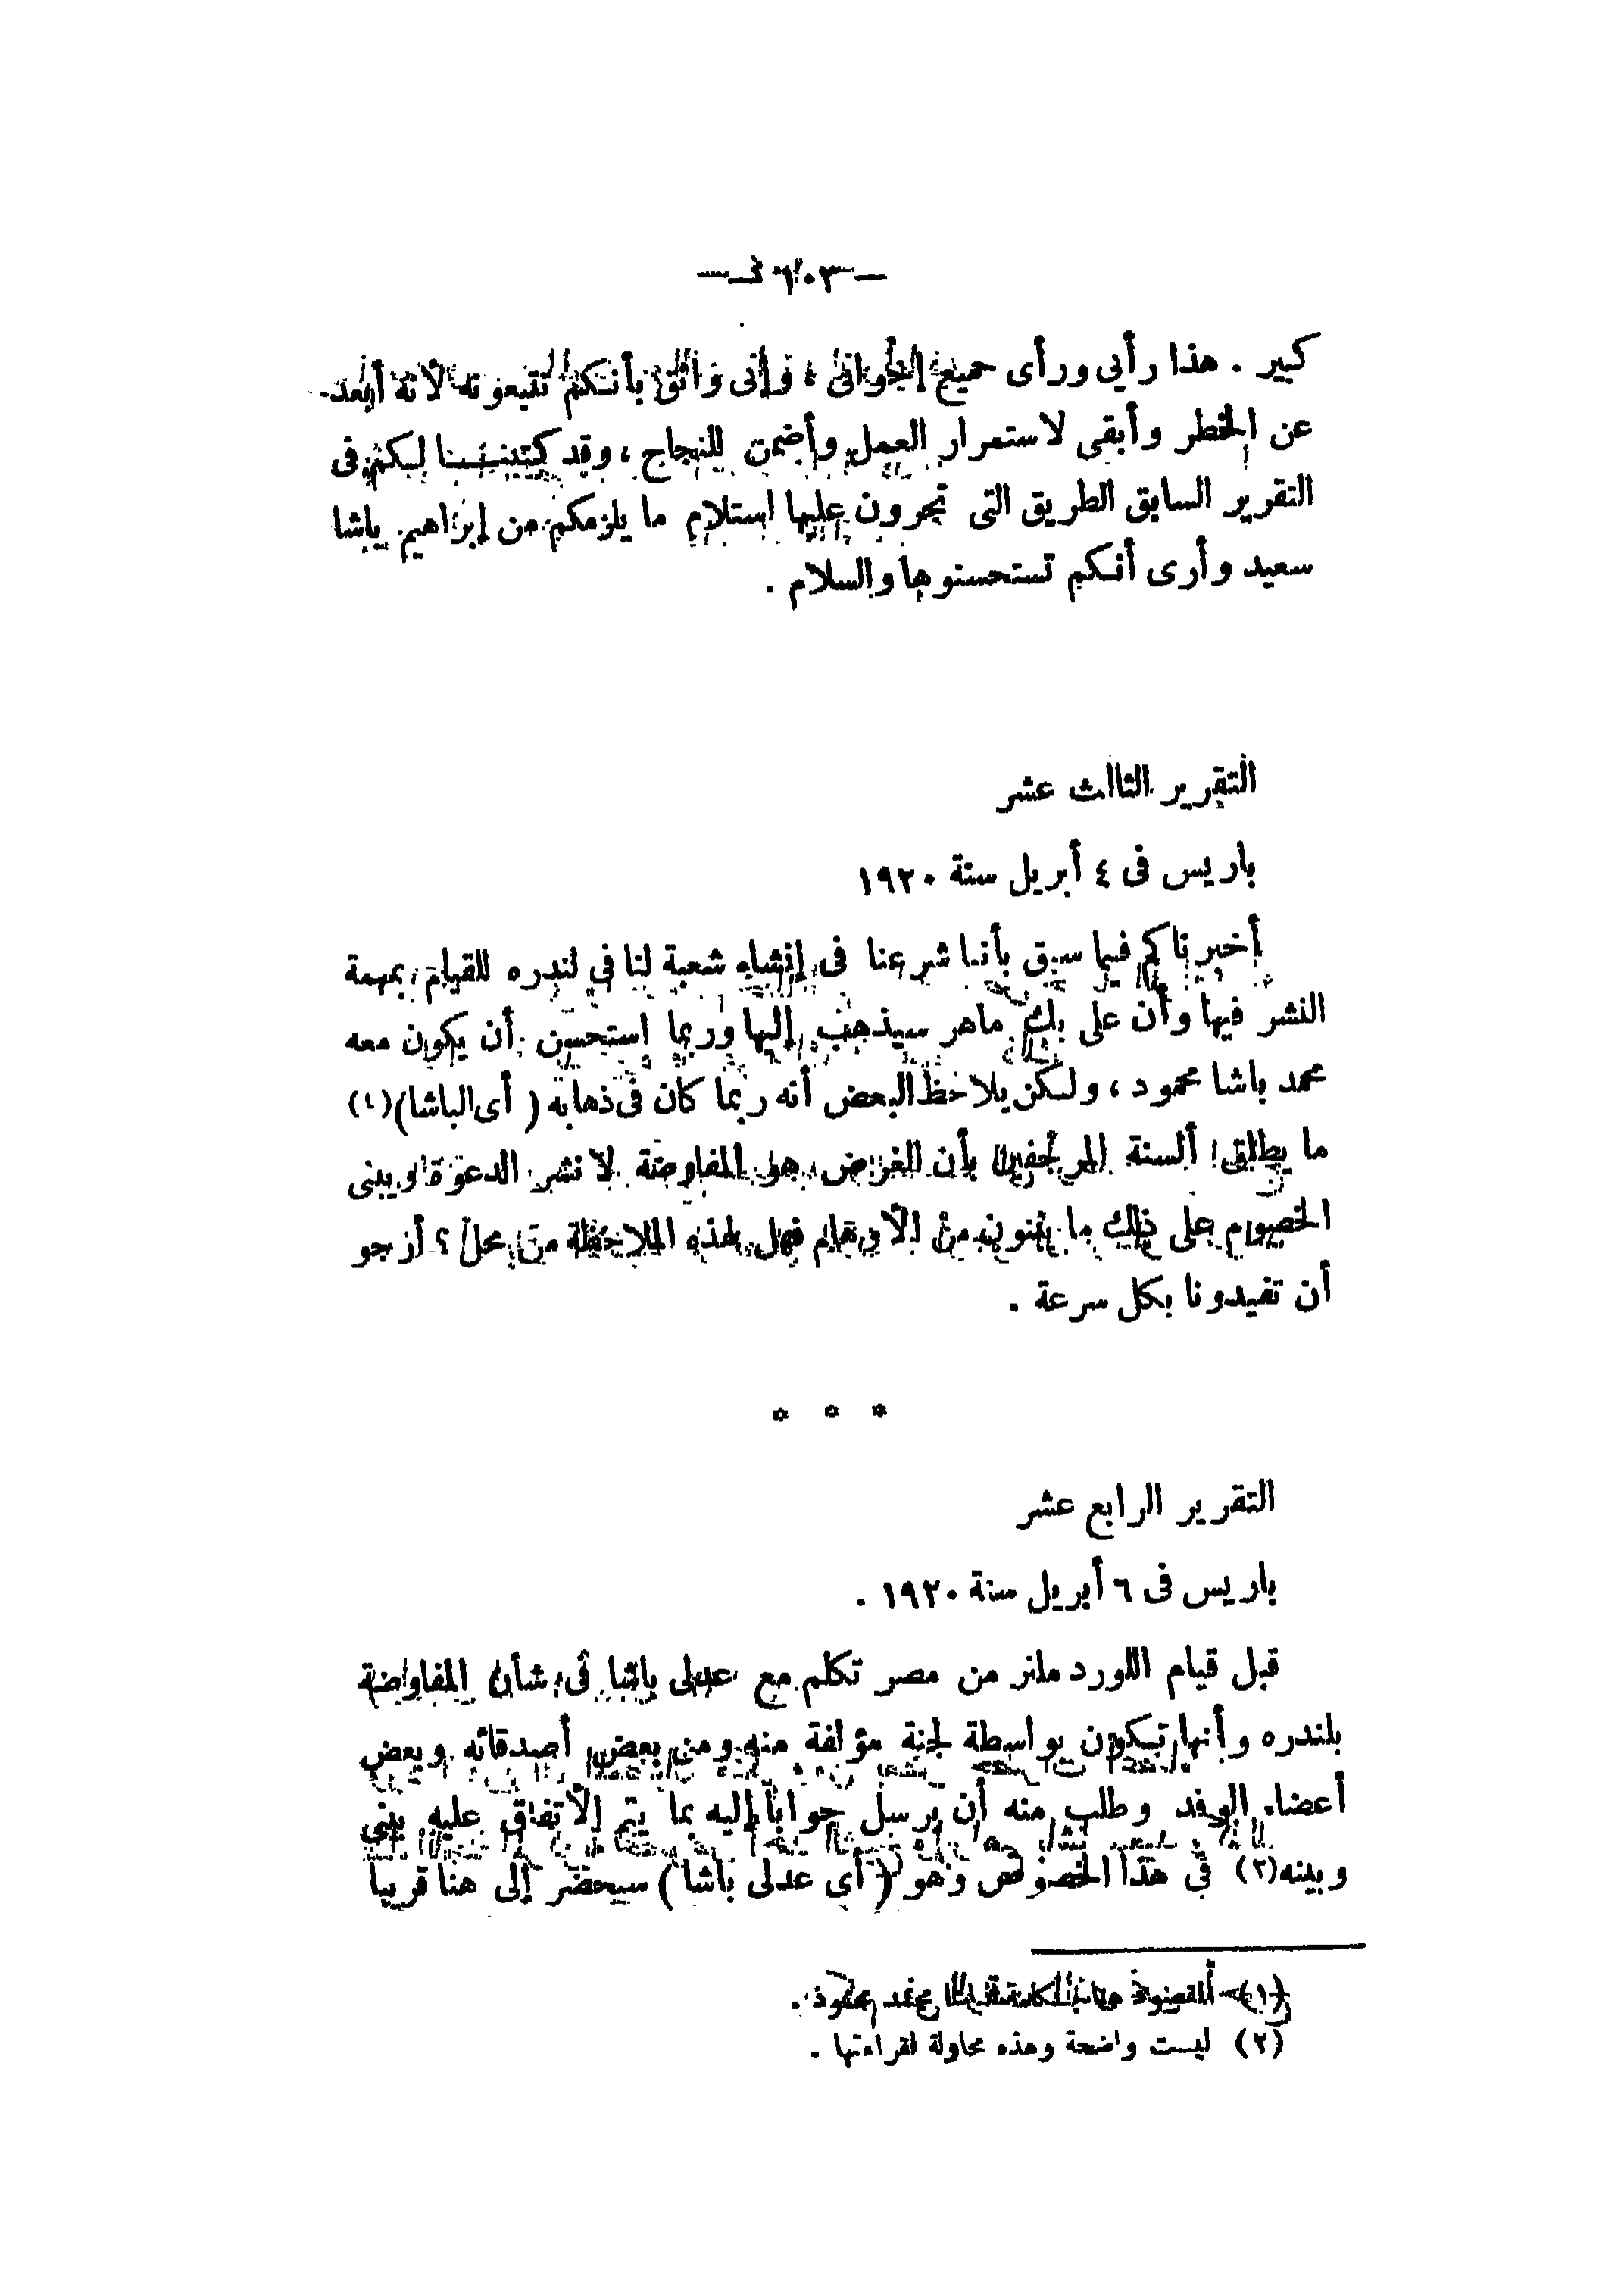 — ١٠٣ —
كبير . هذا رأيي ورأى جميع إخوانى ، وإنى واثق بأنكم تتبعونه لأنه أبعد
عن الخطر وأبقى لاستمرار العمل وأضمن للنجاح ، وقد كتبنا لكم فى
التقرير السابق الطريق التى تجرون عليها استلام ما يلزمكم من إبراهيم باشا
سعيد وأرى أنكم تستحسنوها والسلام .
التقرير الثالث عشر
باريس فى ٤ أبريل سنة ١٩٢٠
أخبرناكم فيما سبق بأننا شرعنا فى إنشاء شعبة لنا فى لندره للقيام بمهمة
النشر فيها وأن على بك ماهر سيذهب إليها وربما استحسن أن يكون معه
محمد باشا محمود ، ولكن يلاحظ البعض أنه ربما كان فى ذهابه ( أى الباشا)(١)
ما يطلق ألسنة المرجفين بأن الغرض هو المفاوضة لا نشر الدعوة ويبنى
الخصوم على ذلك ما يبنون من الأوهام فهل لهذه الملاحظة من محل ؟ أرجو
أن تفيدونا بكل سرعة .
* * *
التقرير الرابع عشر
باريس فى ٦ أبريل سنة ١٩٢٠ .
قبل قيام اللورد ملنر من مصر تكلم مع عدلى باشا فى شأن المفاوضة
بلندره وأنها تكون بواسطة لجنة مؤلفة منه ومن بعض أصدقائه وبعض
أعضاء الوفد وطلب منه أن يرسل جواباً إليه بما يتم الاتفاق عليه بينى
وبينه(٢) فى هذا الخصوص وهو ( أى عدلى باشا ) سيحضر إلى هنا قريباً
(١) المقصود محمد محمود .
(٢) ليست واضحة وهذه محاولة لقراءتها .